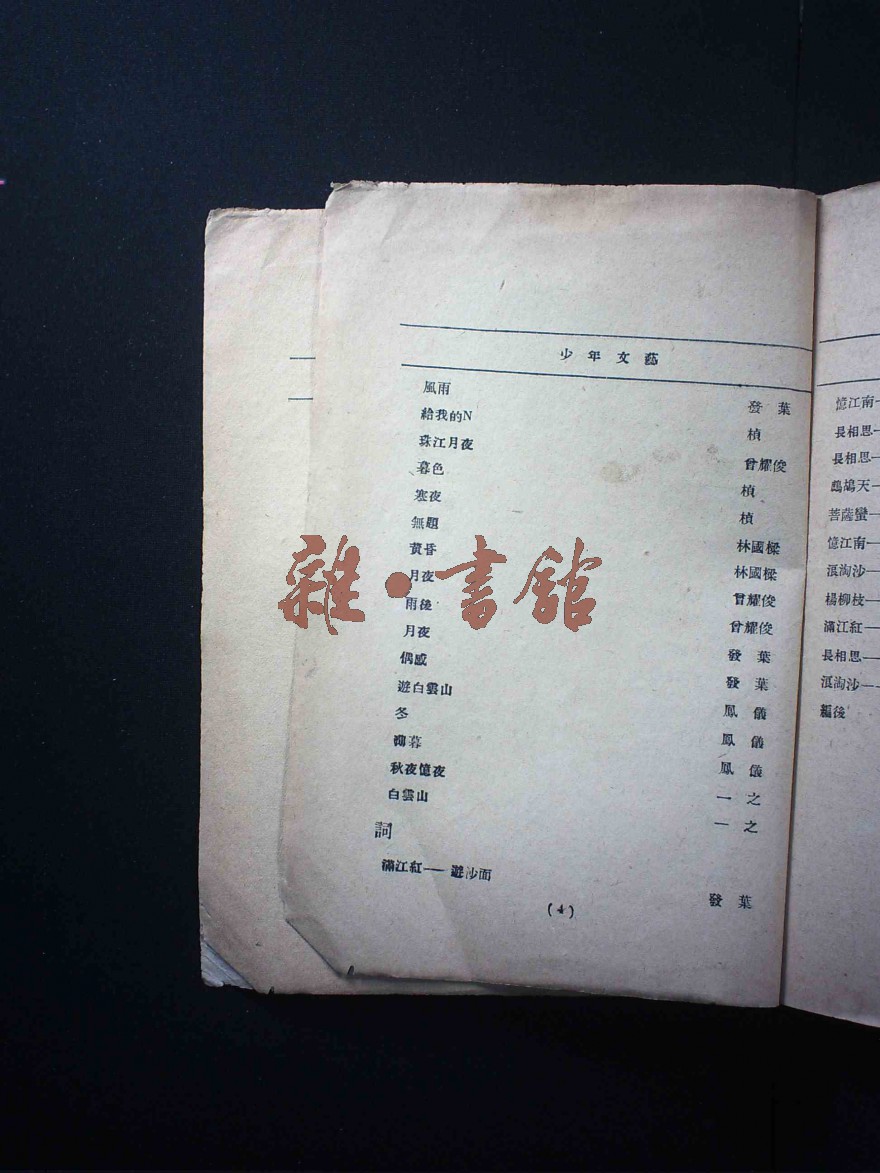 少年文藝
風雨 發葉
給我的N 楨
珠江月夜 曾耀俊
暮色 楨
寒夜 楨
無題 林國樑
黃昏 林國樑
月夜 曾耀俊
雨後 曾耀俊
月夜 發葉
偶感 發葉
遊白雲山 鳳儀
冬 鳳儀
暮 鳳儀
秋夜憶夜 一之
白雲山 一之
詞
滿江紅——遊沙面 發葉
(4)
憶江南—
長相思—
長相思—
鷓鴣天—
菩薩蠻—
憶江南—
浪淘沙—
楊柳枝—
滿江紅—
長相思—
浪淘沙—
編後
雜·書館